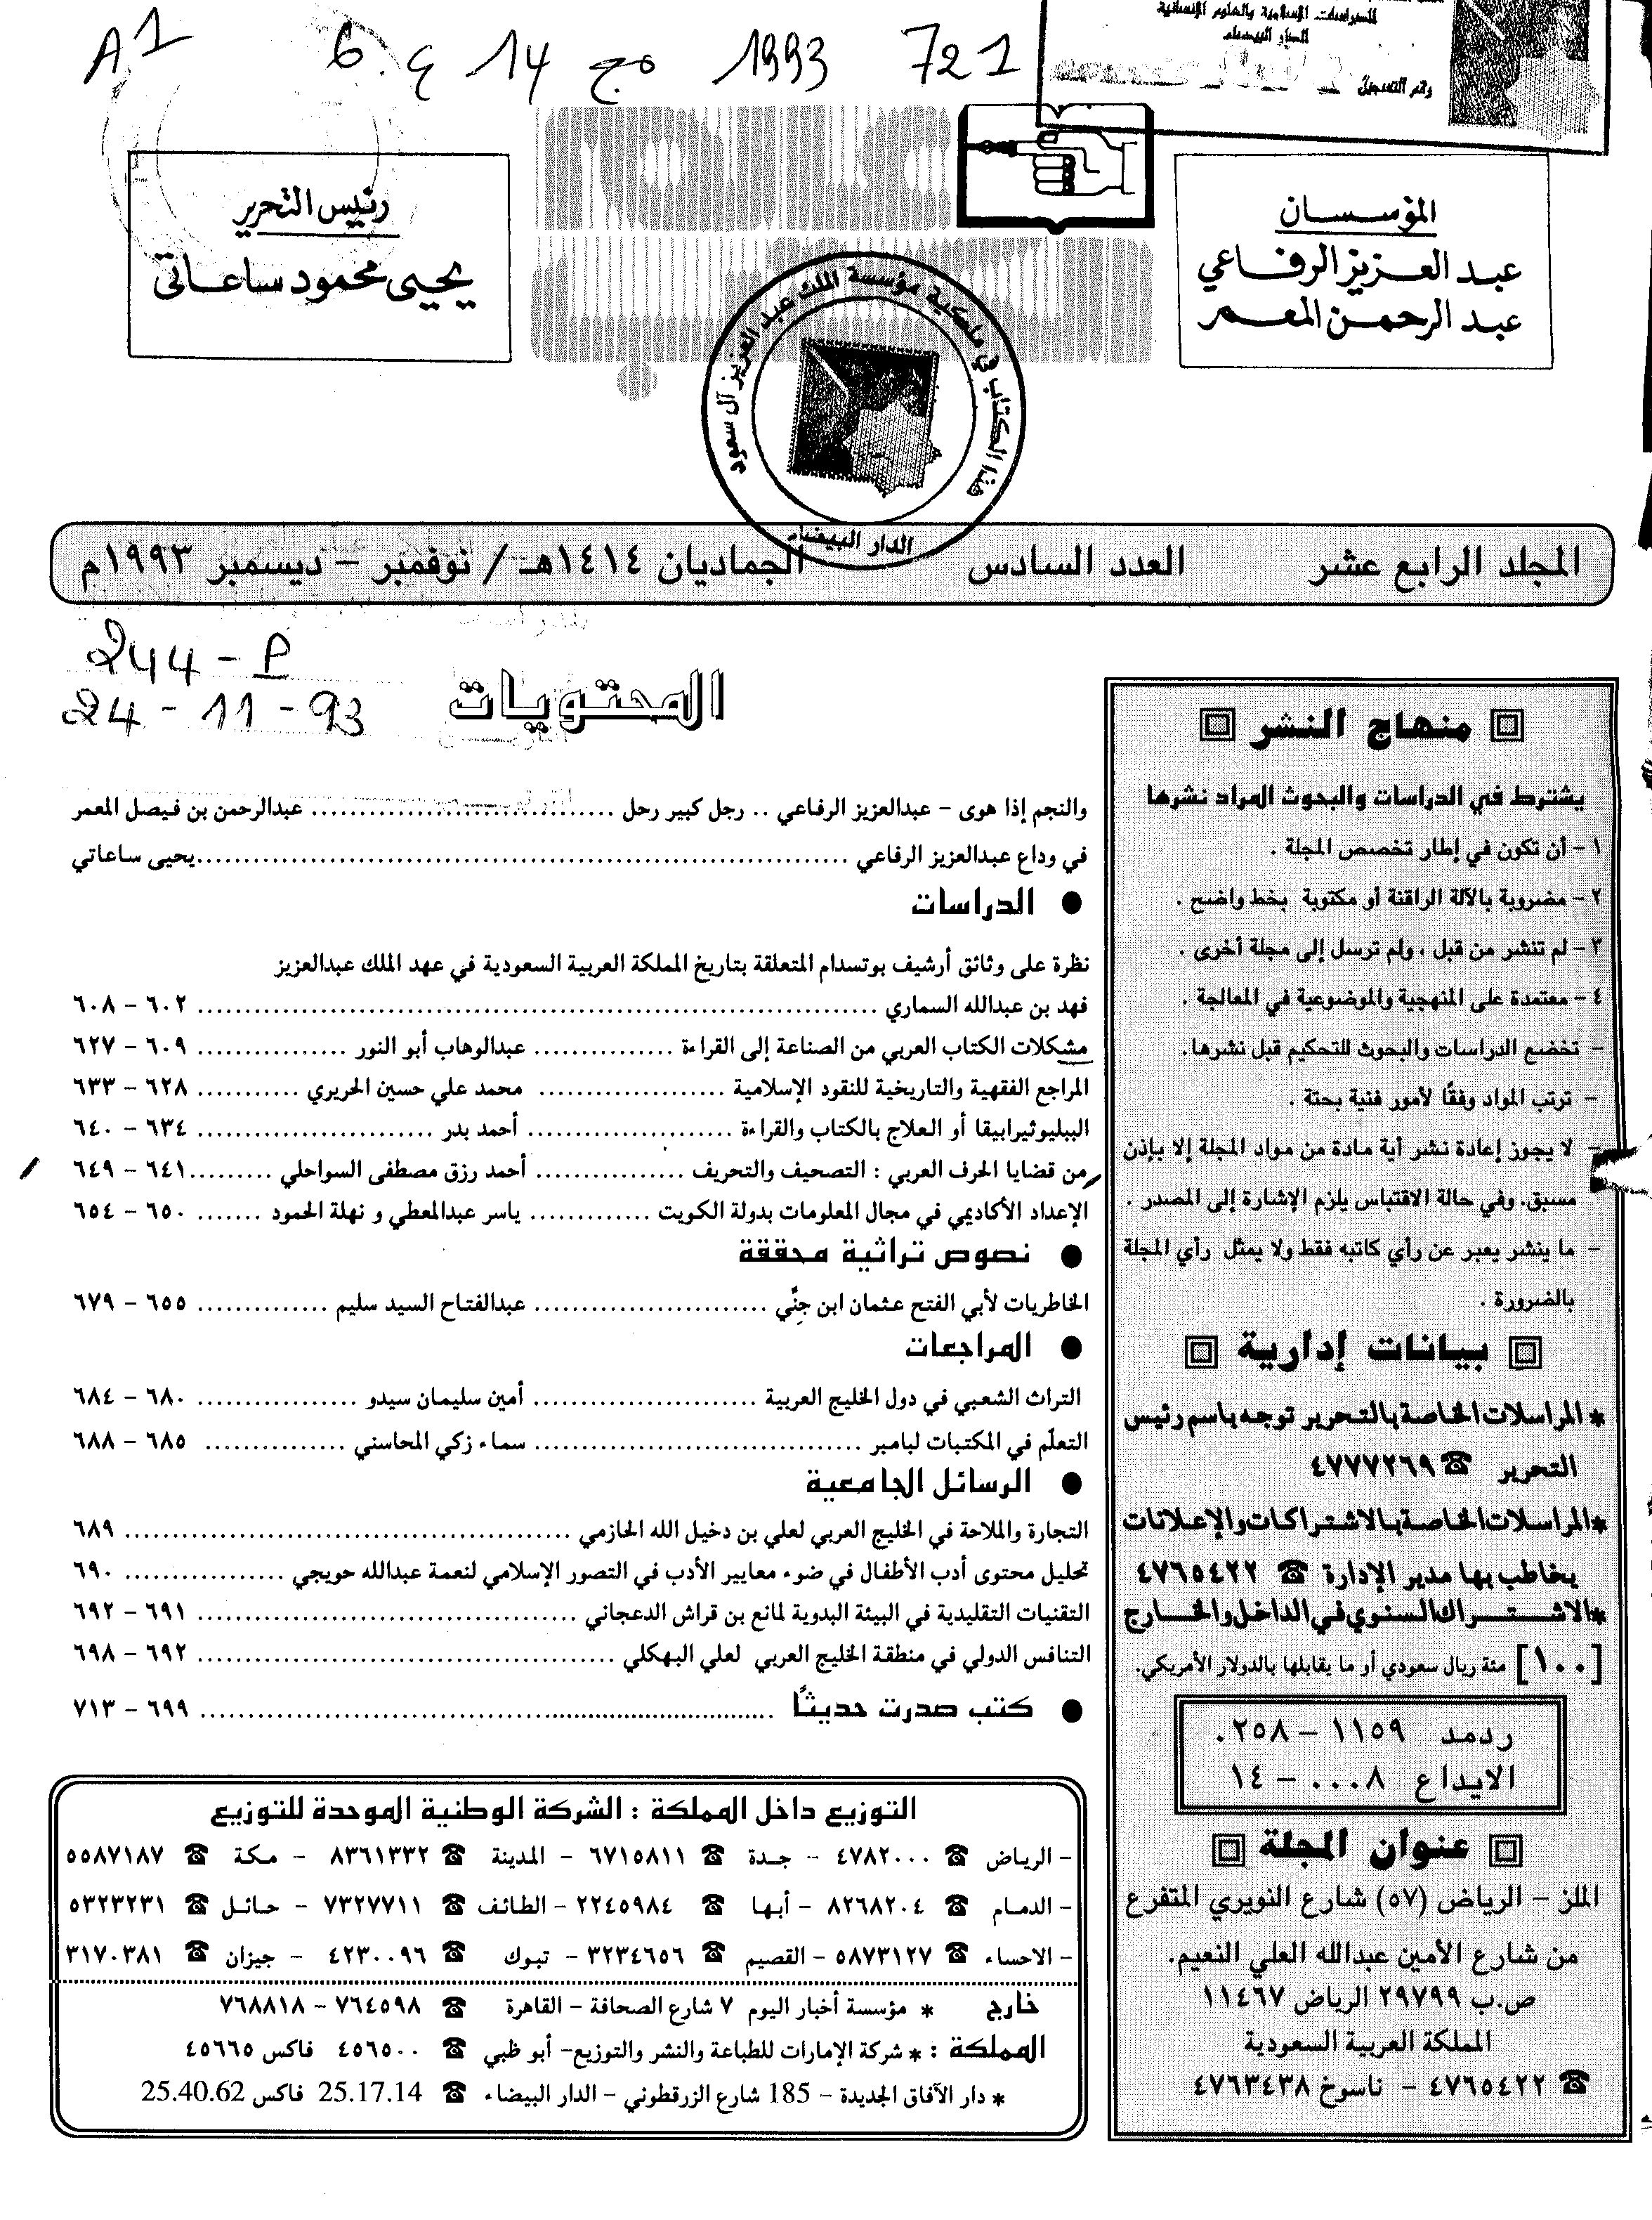 للدراسات الإسلامية والعلوم الإنسانية
الدار البيضاء
رقم التسجيل
A1 6 .ع 14 مج 1993 721
المؤسسان
عبد العزيز الرفاعي
عبد الرحمن المعمر
رئيس التحرير
يحيى محمود ساعاتي
هذا الكتاب في ملكية مؤسسة الملك عبد العزيز آل سعود
الدار البيضاء
المجلد الرابع عشر العدد السادس الجماديان ١٤١٤هـ / نوفمبر – ديسمبر ١٩٩٣م
244 - P
24 - 11 - 93
منهاج النشر
يشترط في الدراسات والبحوث المراد نشرها
١ – أن تكون في إطار تخصص المجلة .
٢ – مضروبة بالآلة الراقنة أو مكتوبة بخط واضح .
٣ – لم تنشر من قبل ، ولم ترسل إلى مجلة أخرى .
٤ – معتمدة على المنهجية والموضوعية في المعالجة .
– تخضع الدراسات والبحوث للتحكيم قبل نشرها.
– ترتب المواد وفقًا لأمور فنية بحتة .
– لا يجوز إعادة نشر أية مادة من مواد المجلة إلا بإذن
مسبق. وفي حالة الاقتباس يلزم الإشارة إلى المصدر .
– ما ينشر يعبر عن رأي كاتبه فقط ولا يمثل رأي المجلة
بالضرورة .
بيانات إدارية
* المراسلات الخاصة بالتحرير توجه باسم رئيس
التحرير ☎ ٤٧٧٧٢٦٩
* المراسلات الخاصة بالاشتراكات والإعلانات
يخاطب بها مدير الإدارة ☎ ٤٧٦٥٤٢٢
* الاشتراك السنوي في الداخل والخارج
[١٠٠] مئة ريال سعودي أو ما يقابلها بالدولار الأمريكي.
ردمد ١١٥٩ – ٢٥٨٠
الايداع ٠٠٠٨ – ١٤
عنوان المجلة
الملز – الرياض (٥٧) شارع النويري المتفرع
من شارع الأمين عبدالله العلي النعيم.
ص.ب ٢٩٧٩٩ الرياض ١١٤٦٧
المملكة العربية السعودية
☎ ٤٧٦٥٤٢٢ – ناسوخ ٤٧٦٣٤٣٨
المحتويات
والنجم إذا هوى – عبدالعزيز الرفاعي .. رجل كبير رحل .......... عبدالرحمن بن فيصل المعمر
في وداع عبدالعزيز الرفاعي .......... يحيى ساعاتي
● الدراسات
نظرة على وثائق أرشيف بوتسدام المتعلقة بتاريخ المملكة العربية السعودية في عهد الملك عبدالعزيز
فهد بن عبدالله السماري .......... ٦٠٢ – ٦٠٨
مشكلات الكتاب العربي من الصناعة إلى القراءة .......... عبدالوهاب أبو النور .......... ٦٠٩ – ٦٢٧
المراجع الفقهية والتاريخية للنقود الإسلامية .......... محمد علي حسين الحريري .......... ٦٢٨ – ٦٣٣
الببليوثيرابيقا أو العلاج بالكتاب والقراءة .......... أحمد بدر .......... ٦٣٤ – ٦٤٠
من قضايا الحرف العربي : التصحيف والتحريف .......... أحمد رزق مصطفى السواحلي .......... ٦٤١ – ٦٤٩
الإعداد الأكاديمي في مجال المعلومات بدولة الكويت .......... ياسر عبدالمعطي و نهلة الحمود ....... ٦٥٠ – ٦٥٤
● نصوص تراثية محققة
الخاطريات لأبي الفتح عثمان ابن جنِّي .......... عبدالفتاح السيد سليم .......... ٦٥٥ – ٦٧٩
● المراجعات
التراث الشعبي في دول الخليج العربية .......... أمين سليمان سيدو .......... ٦٨٠ – ٦٨٤
التعلّم في المكتبات لبامبر .......... سماء زكي المحاسني .......... ٦٨٥ – ٦٨٨
● الرسائل الجامعية
التجارة والملاحة في الخليج العربي لعلي بن دخيل الله الحازمي .......... ٦٨٩
تحليل محتوى أدب الأطفال في ضوء معايير الأدب في التصور الإسلامي لنعمة عبدالله حويجي .......... ٦٩٠
التقنيات التقليدية في البيئة البدوية لمانع بن قراش الدعجاني .......... ٦٩١ – ٦٩٢
التنافس الدولي في منطقة الخليج العربي لعلي البهكلي .......... ٦٩٢ – ٦٩٨
● كتب صدرت حديثًا .......... ٦٩٩ – ٧١٣
التوزيع داخل المملكة : الشركة الوطنية الموحدة للتوزيع
– الرياض ☎ ٤٧٨٢٠٠٠ – جدة ☎ ٦٧١٥٨١١ – المدينة ☎ ٨٣٦١٣٣٢ – مكة ☎ ٥٥٨٧١٨٧
– الدمام ☎ ٨٢٦٨٢٠٤ – أبها ☎ ٢٢٤٥٩٨٤ – الطائف ☎ ٧٣٢٧٧١١ – حائل ☎ ٥٣٢٣٢٣١
– الاحساء ☎ ٥٨٧٣١٢٧ – القصيم ☎ ٣٢٣٤٦٥٦ – تبوك ☎ ٤٢٣٠٠٩٦ – جيزان ☎ ٣١٧٠٣٨١
خارج * مؤسسة أخبار اليوم ٧ شارع الصحافة – القاهرة ☎ ٧٦٤٥٩٨ – ٧٦٨٨١٨
المملكة : * شركة الإمارات للطباعة والنشر والتوزيع– أبو ظبي ☎ ٤٥٦٥٠٠ فاكس ٤٥٦٦٥
* دار الآفاق الجديدة – 185 شارع الزرقطوني – الدار البيضاء ☎ 25.17.14 فاكس 25.40.62